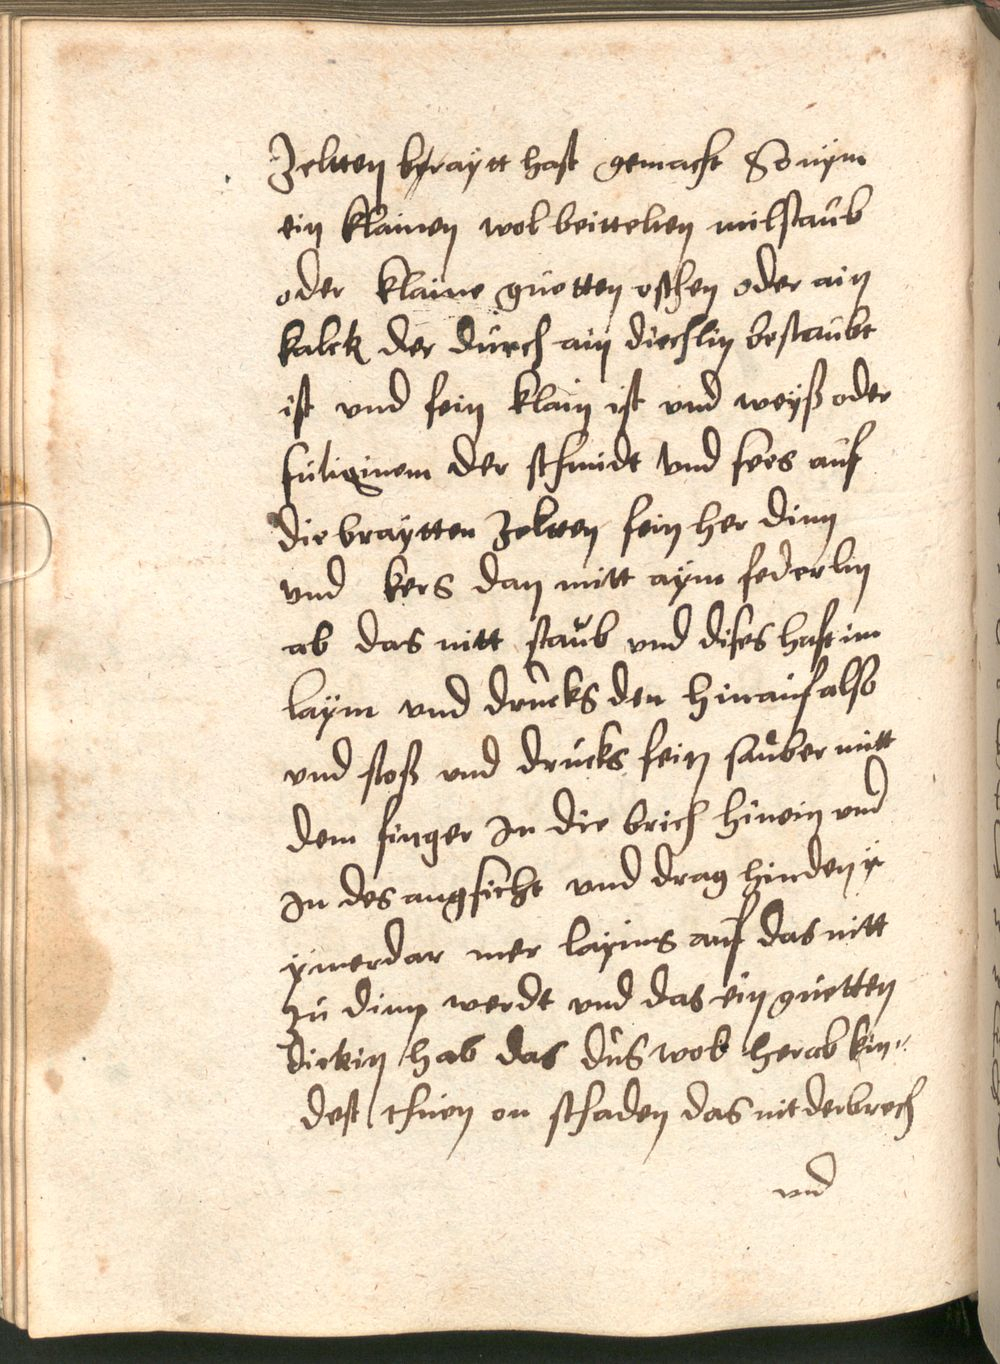 Zeltten braytt hast gemacht So nym
ein klainen wol beittelten milstaub
oder klaine guotten oschen oder ain
kalck der durch ain diechlin bestaubt
ist vnd fein klain ist vnd weyß oder
fuliginem der schmidt vnd sees auf
die braytten Zeltten fein her dinn
vnd kers dan mitt aym federlin
ab das nitt staub vnd dises hast im
laym vnd drucks den hinauf also
vnd stoß vnd drucks fein sauber mitt
dem finger In die brich hinein vnd
In des angsicht vnd drag hinden
ymerdar mer layms auf das nitt
zu dinn werdt vnd das ein guetten
dickin hab das dus wol herab kin„
dest thuen on schaden das nit derbrech
vnd